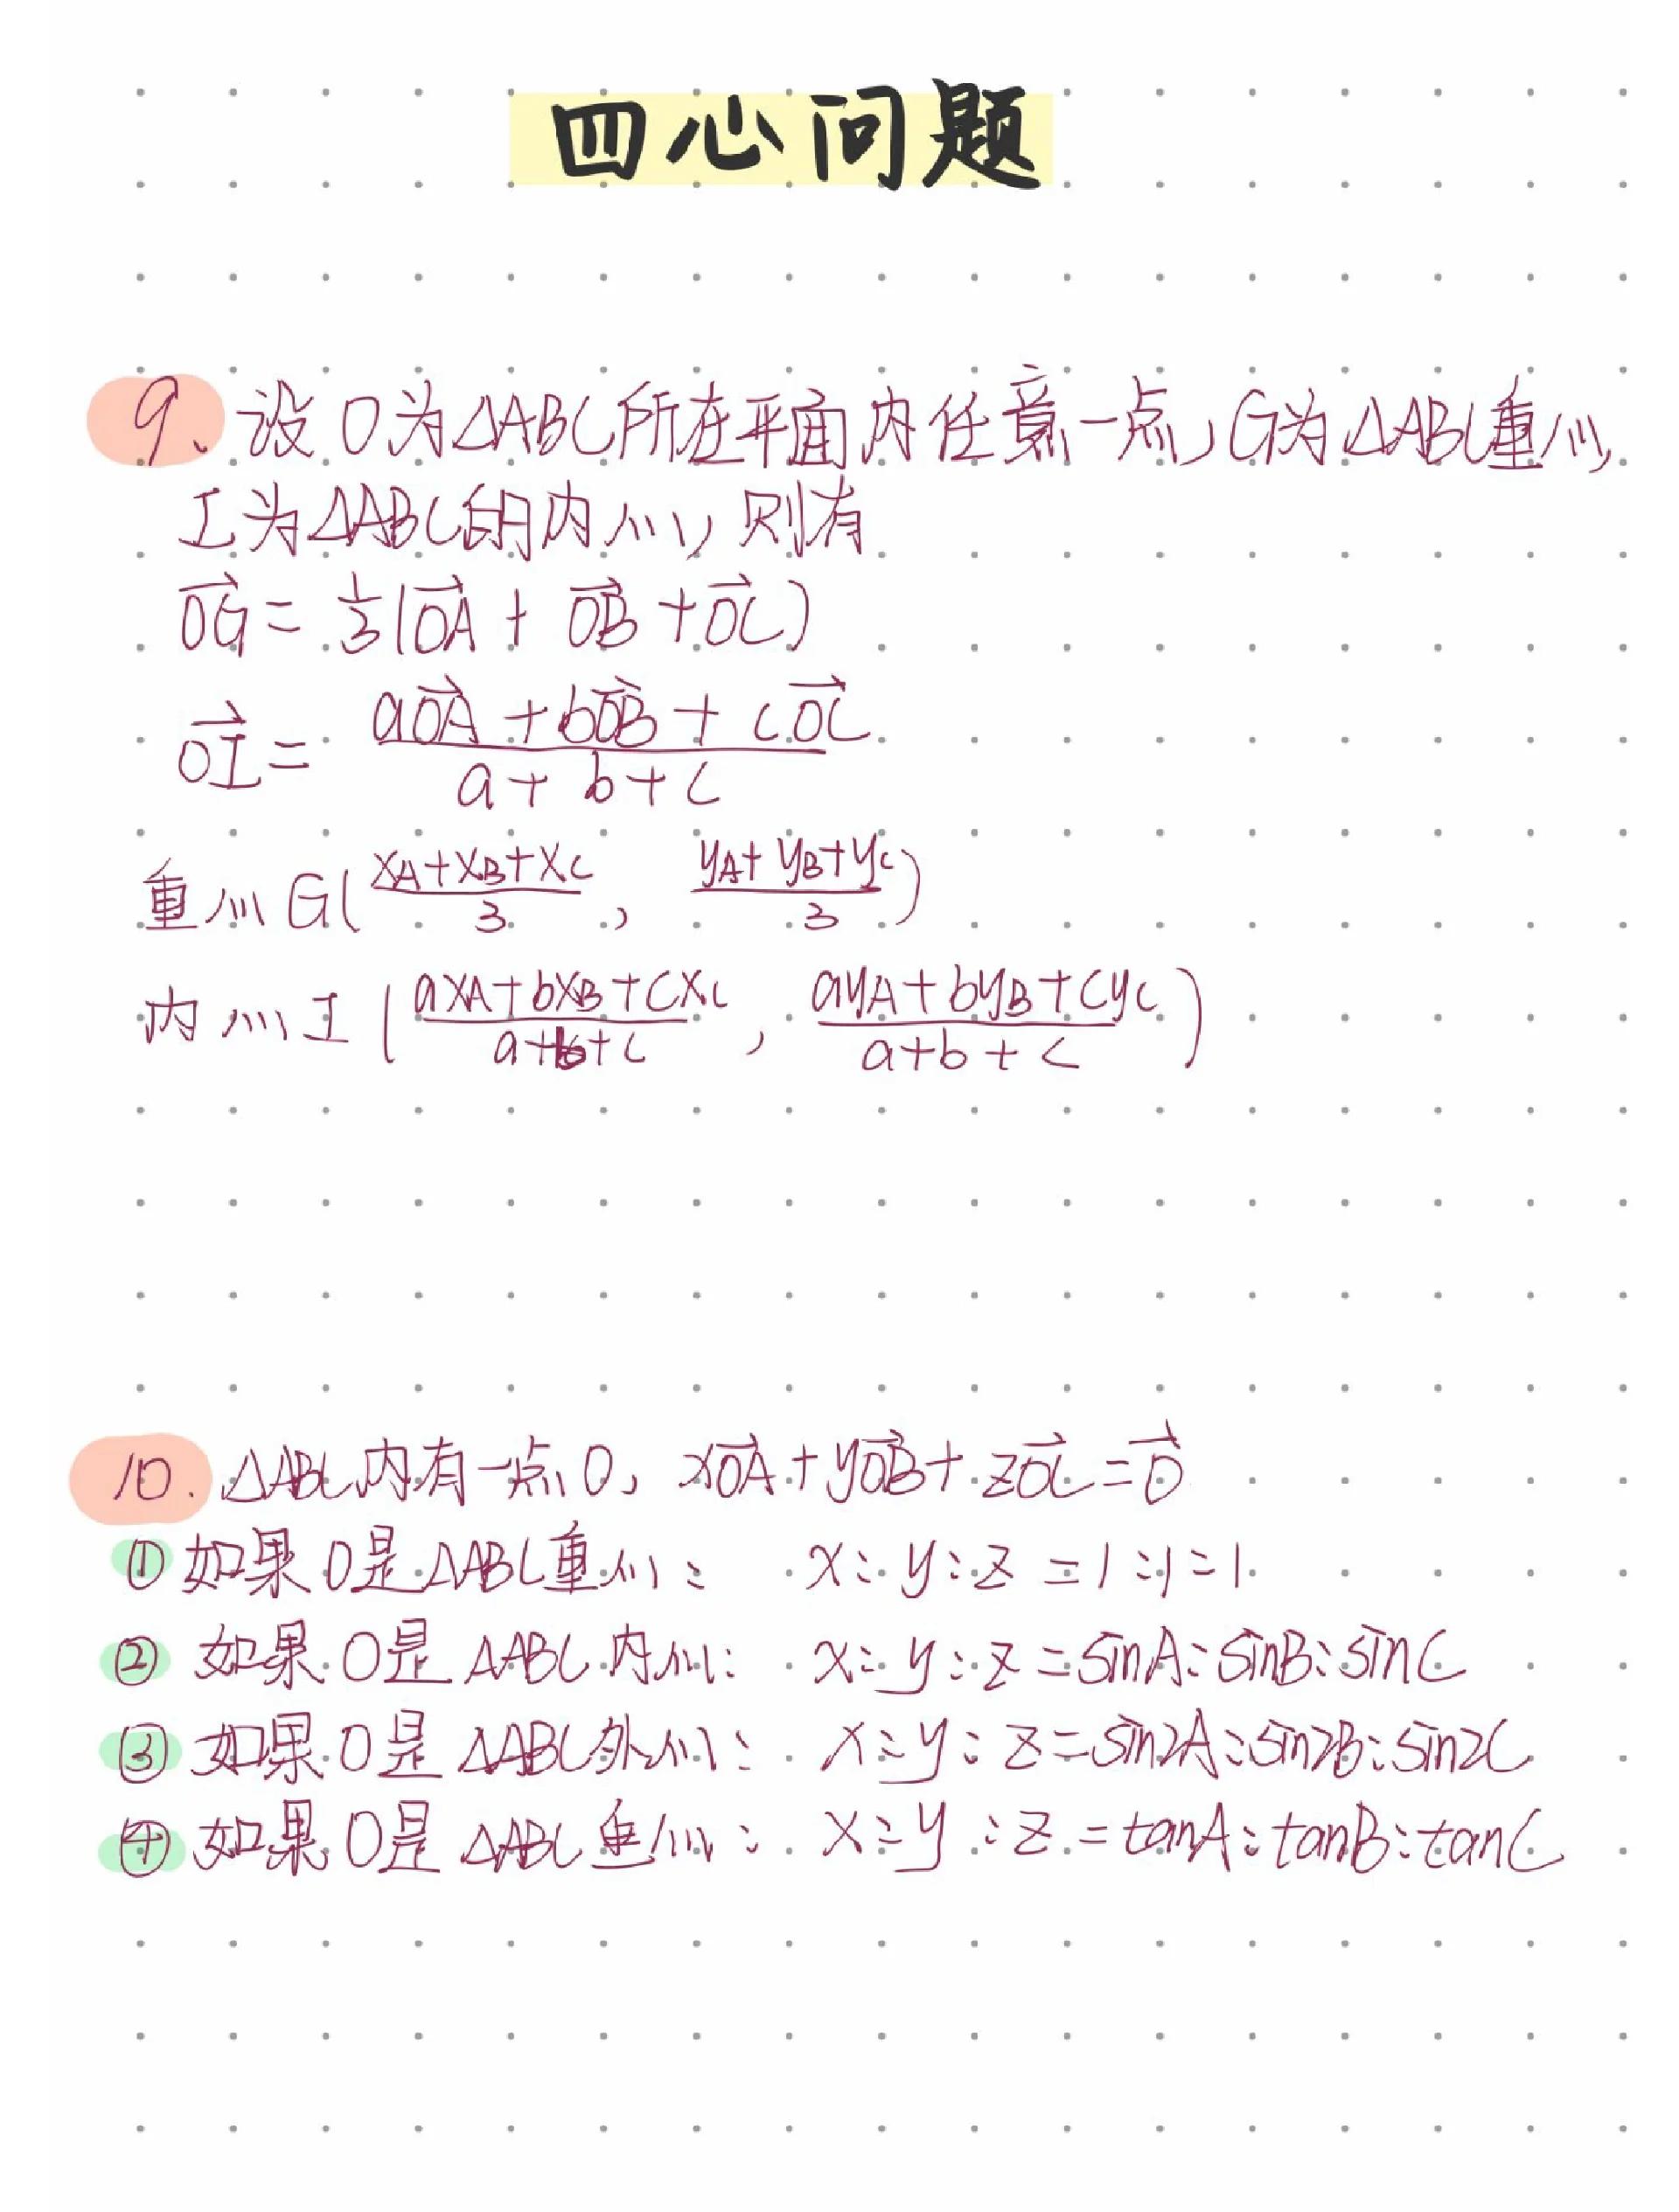 四心问题
9、设O为△ABC所在平面内任意一点,G为△ABC重心,
I为△ABC的内心,则有
$\overrightarrow{OG}=\frac{1}{3}(\overrightarrow{OA}+\overrightarrow{OB}+\overrightarrow{OC})$
$\overrightarrow{OI}=\frac{a\overrightarrow{OA}+b\overrightarrow{OB}+c\overrightarrow{OC}}{a+b+c}$
重心G($\frac{x_A+x_B+x_C}{3}$, $\frac{y_A+y_B+y_C}{3}$)
内心I($\frac{ax_A+bx_B+cx_C}{a+b+c}$, $\frac{ay_A+by_B+cy_C}{a+b+c}$)
10.△ABC内有一点O,$x\overrightarrow{OA}+y\overrightarrow{OB}+z\overrightarrow{OC}=\overrightarrow{0}$
①如果O是△ABC重心: x:y:z=1:1:1
②如果O是△ABC内心: x:y:z=sinA:sinB:sinC
③如果O是△ABC外心: x:y:z=sin2A:sin2B:sin2C
④如果O是△ABC垂心: x:y:z=tanA:tanB:tanC